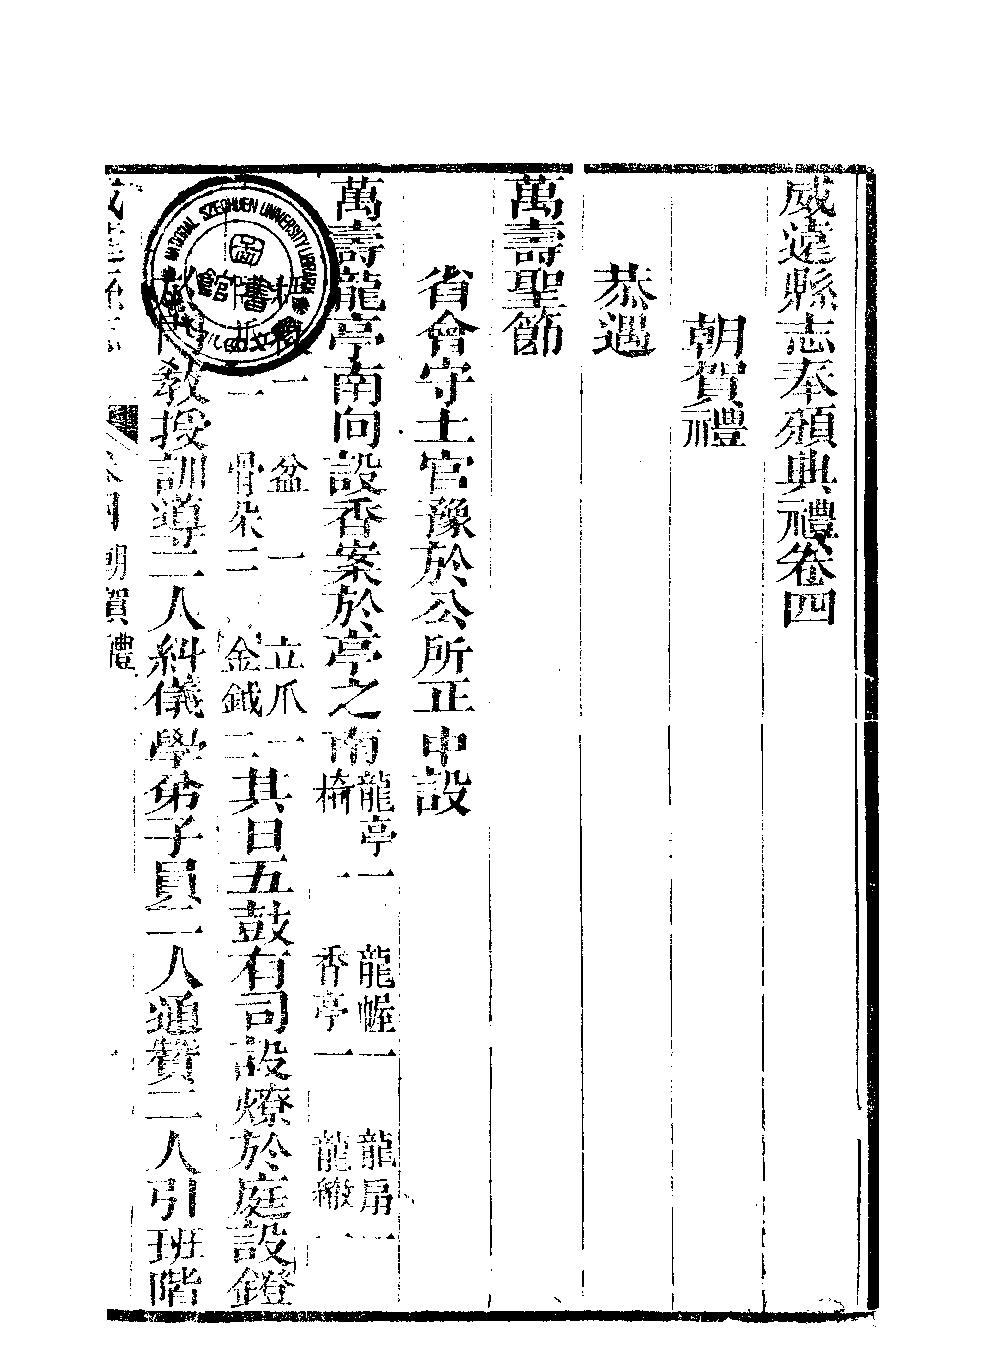 威遠縣志奉頒典禮卷四
朝賀禮
恭遇
萬壽聖節
省會守土官豫於公所正中設
萬壽龍亭南向設香案於亭之南
龍亭一 龍幄一 龍扇一
椅一 香亭一 龍繖一
一 盆一 立爪一
二 骨朵二 金鉞二
其日五鼓有司設燎於庭設鐙
教授訓導二人糾儀學弟子員二人通贊二人引班階
朝賀禮
NATIONAL SZECHUEN UNIVERSITY LIBRARY